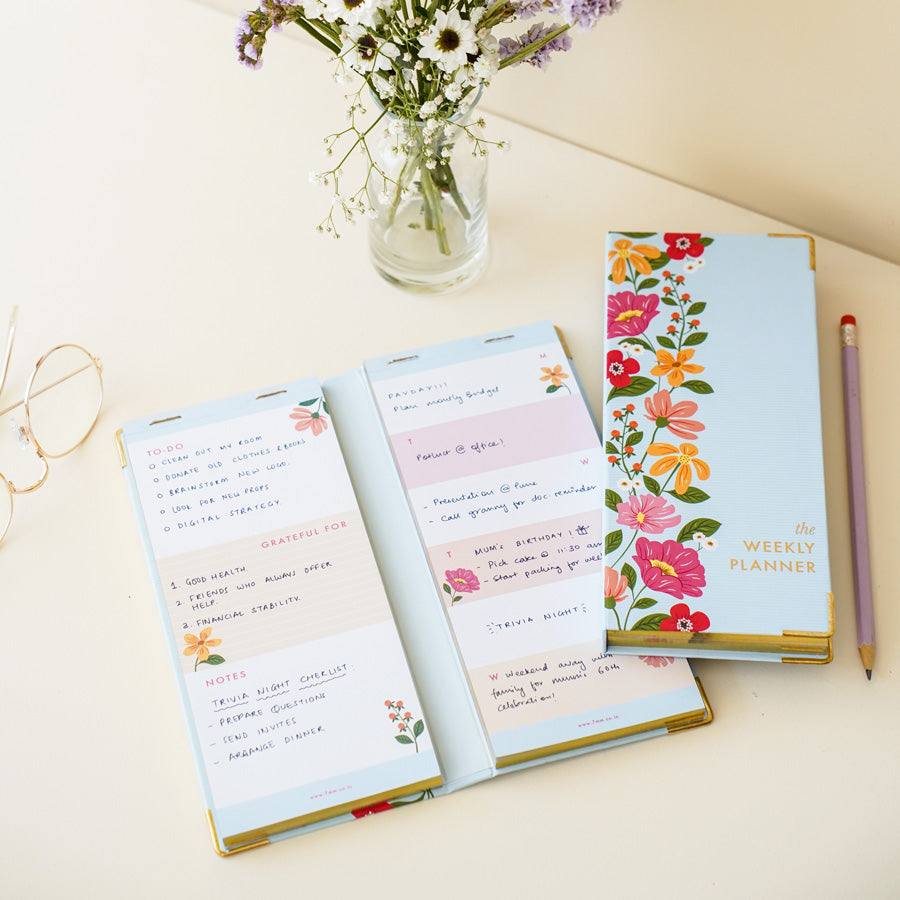 TO-DO
O CLEAN OUT MY ROOM
O DONATE OLD CLOTHES & BOOKS
O BRAINSTORM NEW LOGO.
O LOOK FOR NEW PROPS
O DIGITAL STRATEGY.
GRATEFUL FOR
1. GOOD HEALTH.
2 FRIENDS WHO ALWAYS OFFER
HELP.
3. FINANCIAL STABILITY.
NOTES
TRIVIA NIGHT CHECKLIST:
- PREPARE QUESTIONS
- SEND INVITES
- ARRANGE DINNER
www.7mm.co.in
M
PAYDAY!!!
Plan monthly Budget
T
Potluck @ office!
W
- Presentation @ Pune
- Call granny for doc. reminder
T
MUM'S BIRTHDAY!
- Pick cake @ 11:30 am
- Start packing for
TRIVIA NIGHT
W Weekend away with
family for mum's 60th
celebration!
www.7mm.co.in
the
WEEKLY
PLANNER